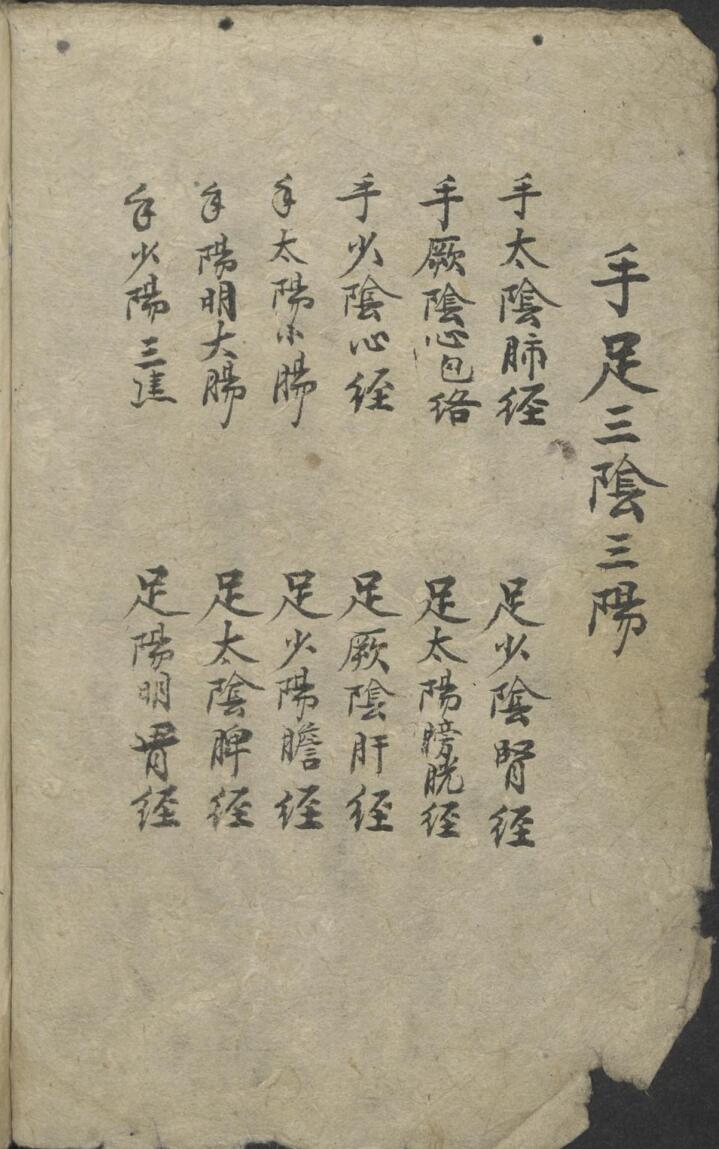 手足三陰三陽
手太陰肺経
足少陰腎経
手厥陰心包络
足太陽膀胱経
手少陰心経
足厥陰肝経
手太陽小腸
足少陽膽経
手陽明大腸
足太陰脾経
手少陽三焦
足陽明胃経